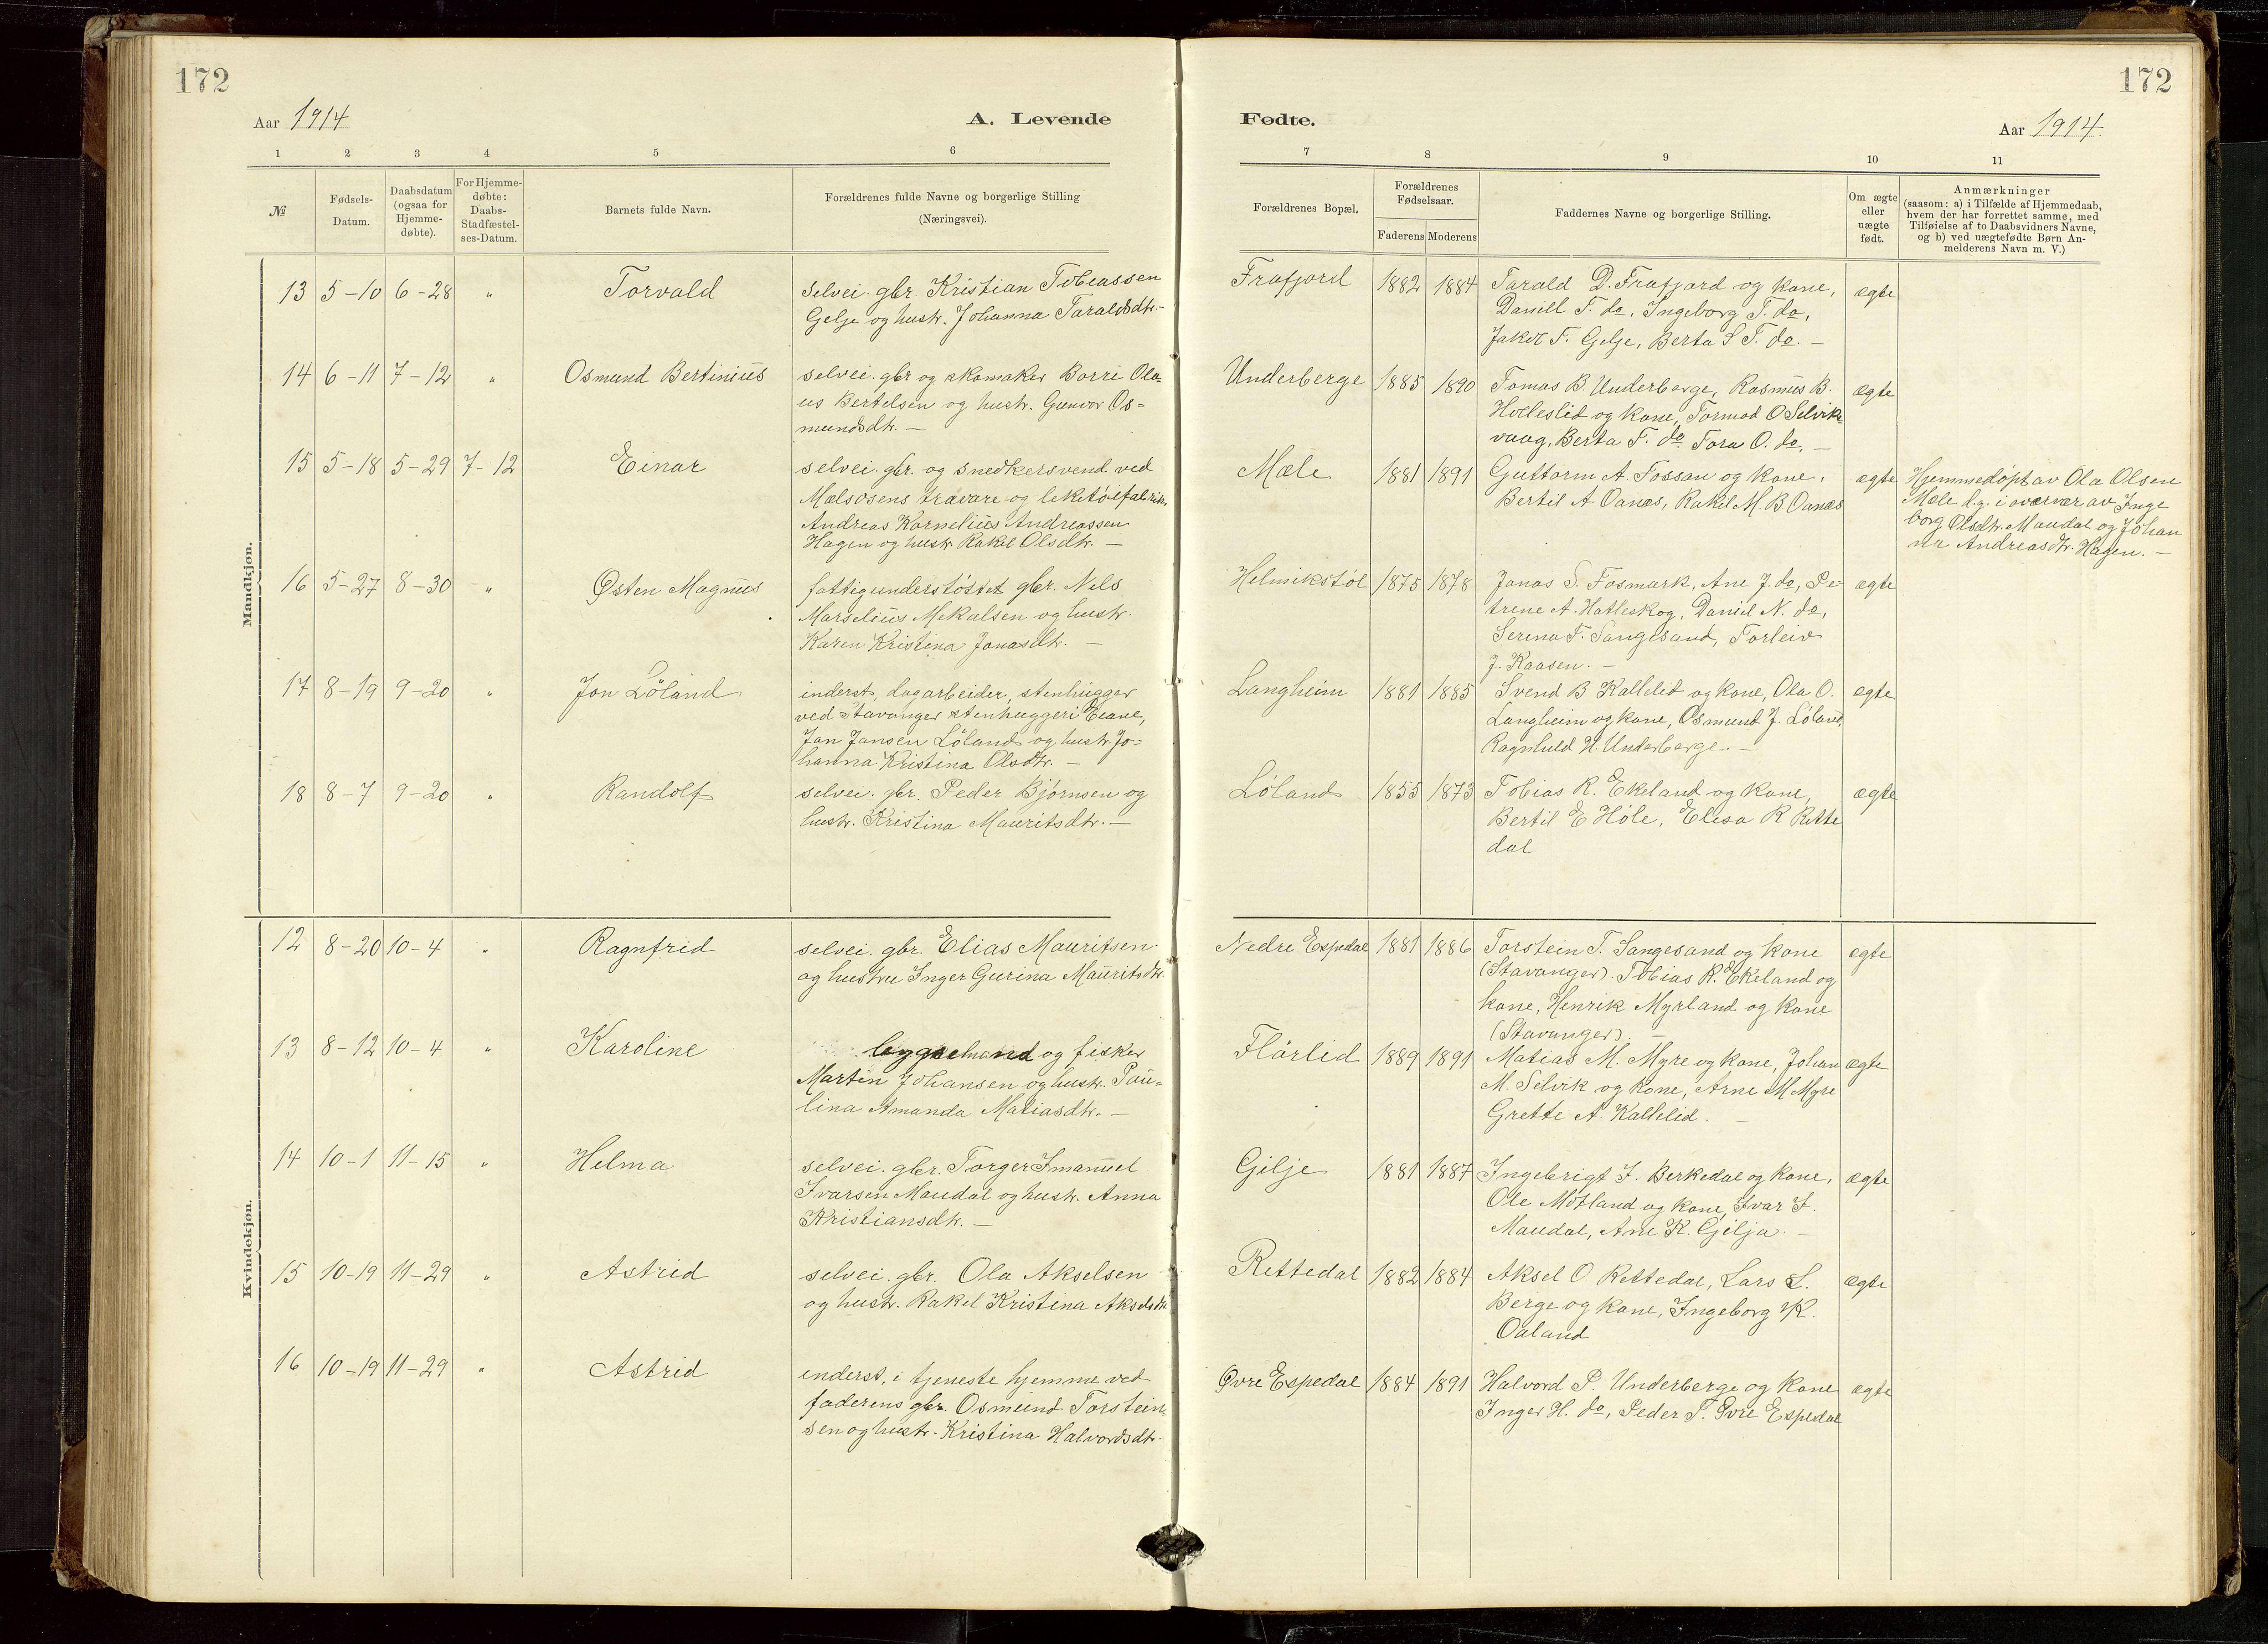 172
172
Aar 1914
A. Levende
Fødte.
Aar 1914.
1 2 3 4 5 6 7 8 9 10 11
№
Fødsels-
Datum.
Daabsdatum
(ogsaa for
Hjemme-
døbte).
For Hjemme-
døbte:
Daabs-
Stadfæstel-
ses-Datum.
Barnets fulde Navn.
Forældrenes fulde Navne og borgerlige Stilling
(Næringsvei).
Forældrenes Bopæl.
Forældrenes
Fødselsaar.
Faderens Moderens
Faddernes Navne og borgerlige Stilling.
Om ægte
eller
uægte
født.
Anmærkninger
(saasom: a) i Tilfælde af Hjemmedaab,
hvem der har forrettet samme, med
Tilføielse af to Daabsvidners Navne,
og b) ved uægtefødte Børn An-
melderens Navn m. V.)
Mandkjøn.
13 5-10 6-28 " Torvald
selvei. gbr. Kristian Tobeassen
Gelje og hustr. Johanna Taraldsdtr.-
Frafjord 1882 1884
Tarald D. Frafjord og kone,
Daniell T. do, Ingeborg T. do,
Jakob T. Gelje, Berta S. T. do. -
ægte
14 6-11 7-12 " Osmund Bertinius
selvei. gbr og skomaker Borre Ola-
us Bertelsen og hustr. Gunvor Os-
mundsdtr. -
Underberge 1885 1890
Tomas B. Underberge, Rasmus B.
Holleslid og kone, Tormod O Selvik-
vaag, Berta T. do Tora O. do. -
ægte
15 5-18 5-29 7-12 Einar
selvei. gbr. og snedkersvend ved
Mælsosens trævare og leketøifabrik,
Andreas Kornelius Andreassen
Hagen og hustr. Rakel Olsdtr. -
Mæle 1881 1891
Guttorm A. Fossan og kone,
Bertil A. Oanæs, Rakel M. B Oanæs
ægte
Hjemmedøpt av Ola Olsen
Mæle l.g. i overvær av Inge
borg Olsdtr. Maudal og Johan
na Andreasdtr. Hagen. -
16 5-27 8-30 " Østen Magnus
fattigunderstøttet gbr. Nels
Marselius Mekalsen og hustr.
Karen Kristina Jonasdtr. -
Helmikstøl 1875 1878
Jonas S. Fosmark, Ane J. do, Pe-
trene A. Hatleskog, Daniel N. do,
Serina T. Sangesand, Torleiv
J. Kaasen. -
ægte
17 8-19 9-20 " Jon Løland
inderst, dagarbeider, stenhugger
ved Stavanger stenhuggeri Eiane,
Jon Jansen Løland og hustr. Jo-
hanna Kristina Olsdtr. -
Langheim 1881 1885
Svend B Kallelid og kone, Ola O.
Langheim og kone, Osmund J. Løland,
Ragnhild H. Underberge. -
ægte
18 8-7 9-20 " Randolf
selvei. gbr. Peder Bjørnsen og
hustr. Kristina Mauritsdtr. -
Løland 1855 1873
Tobias R. Ekeland og kone,
Bertil E Høle, Elisa R Rette
dal
ægte
Kvindekjøn.
12 8-20 10-4 " Ragnfrid
selvei. gbr. Elias Mauritsen
og hustru Inger Gurina Mauritsdtr.
Nedre Espedal 1881 1886
Torstein T. Sangesand og kone
(Stavanger). Tobias R. Ekeland og
kone, Henrik Myrland og kone
(Stavanger). -
ægte
13 8-12 10-4 " Karoline
og fisker
Martin Johansen og hustr. Pau-
lina Amanda Matiasdtr. -
Flørlid 1889 1891
Matias M. Myre og kone, Johan
M. Selvik og kone, Arne M Myre
Grette A. Kallelid. -
ægte
14 10-1 11-15 " Helma
selvei. gbr. Torger Imanuel
Ivarsen Maudal og hustr. Anna
Kristiansdtr. -
Gilje 1881 1887
Ingebrigt I. Berkedal og kone,
Ole Motland og kone, Ivar I.
Maudal, Ane K. Gilja. -
ægte
15 10-19 11-29 " Astrid
selvei. gbr. Ola Akselsen
og hustr. Rakel Kristina Akselsdtr
Rettedal 1882 1884
Aksel O. Rettedal, Lars L.
Berge og kone, Ingeborg K.
Oaland
ægte
16 10-19 11-29 " Astrid
inderst, i tjeneste hjemme ved
faderens gbr. Osmund Torstein-
sen og hustr. Kristina Halvordsdtr.
Øvre Espedal 1884 1891
Halvord P. Underberge og kone
Inger H. do, Peder T. Øvre Espedal
ægte